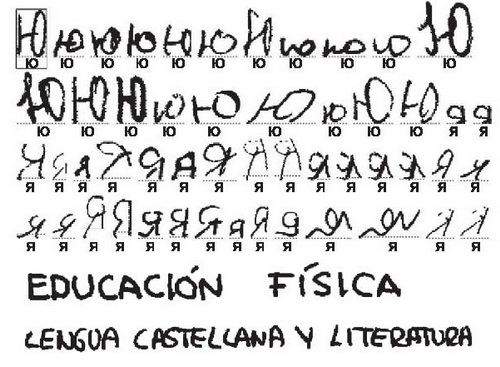 Ю ю ю ю ю ю Ю ю ю ю Ю
ю ю ю ю ю ю ю ю ю ю ю
Ю Ю Ю ю ю ю ю Ю Ю я я
ю ю ю ю ю ю ю ю ю я я
Я я я Я я я я Я Я я я я я я я
я я я я я я я я я я я я я я я
я я Я Я я я я я я я я я я я
я я я я я я я я я я я я я я
EDUCACIÓN FÍSICA
LENGUA CASTELLANA Y LITERATURA